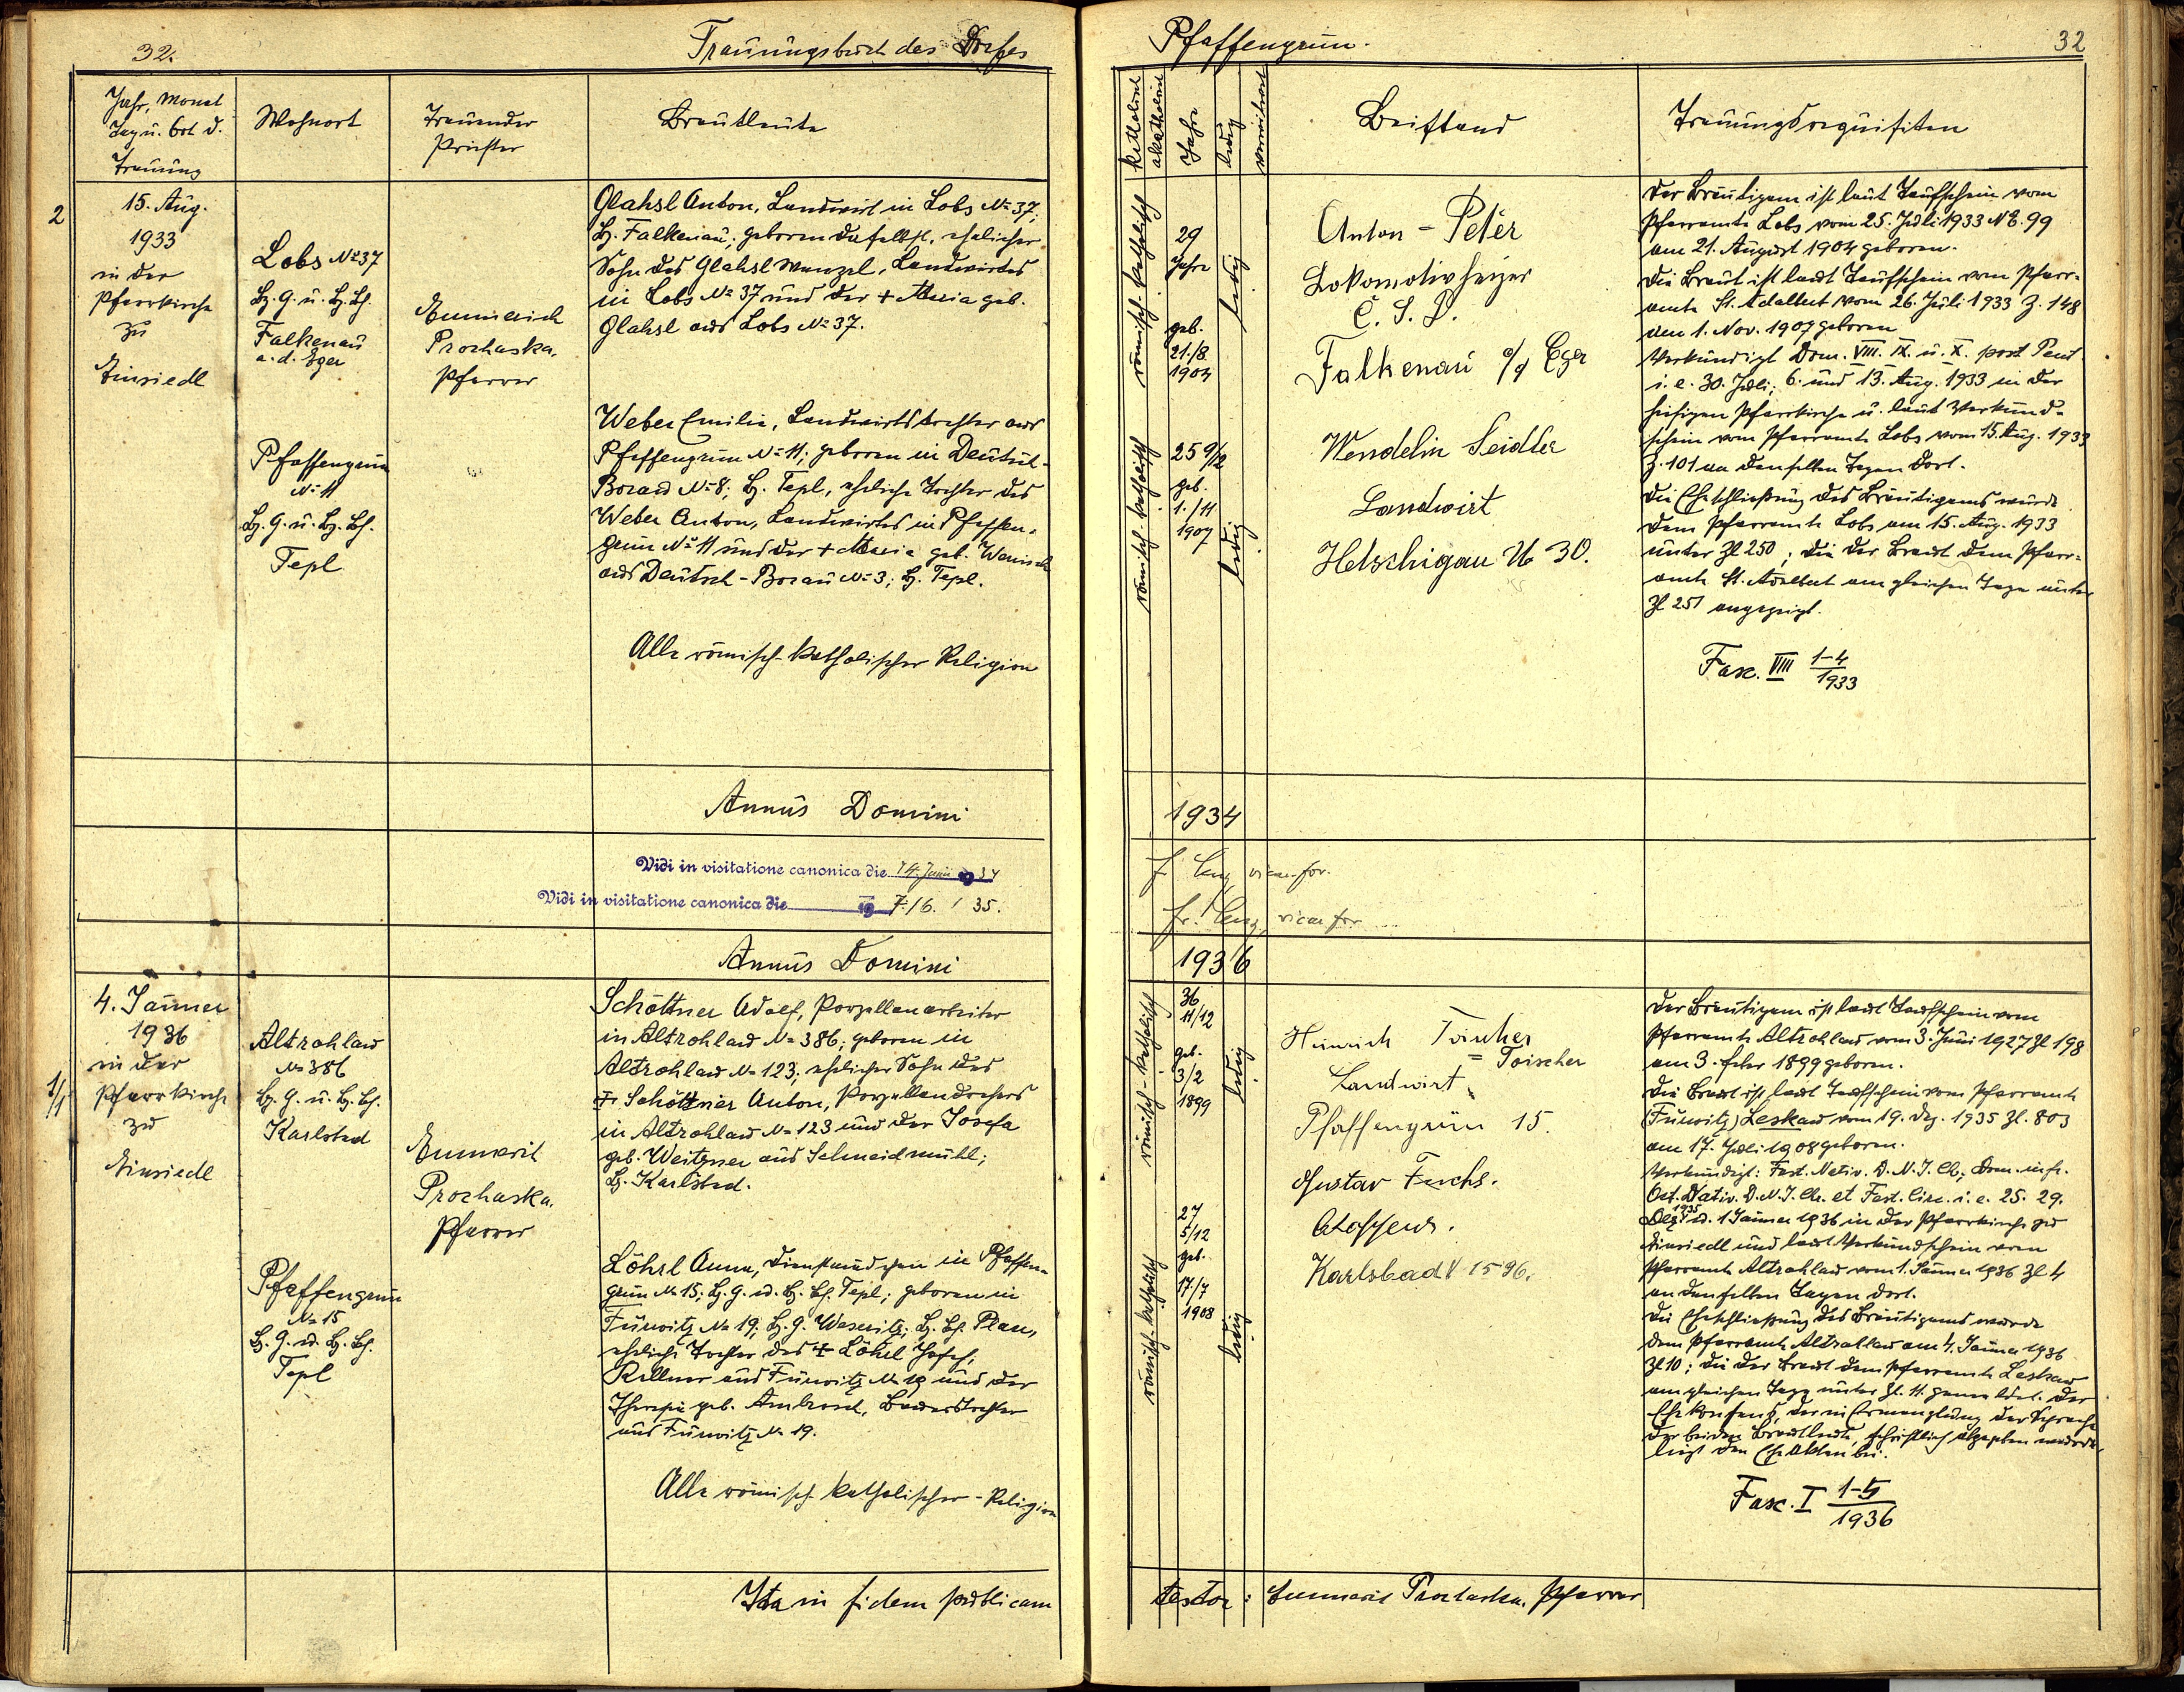 32.
Trauungsbuch des Dorfes
Jahr, Monat
Tag u. Ort d.
Trauung
Wohnort
Trauender
Priester
Brautleute
2
15. Aug.
1933
in der
Pfarrkirche
zu
Einsiedl
Lobs No 37
Bz. G. u. Bz. Bh.
Falkenau
a. d. Eger
Pfaffengrün
No 11
Bz. G. u. Bz. Bh.
Tepl
Emmerich
Prochaska,
Pfarrer
Glahsl Anton, Landwirt in Lobs No 37;
Bz. Falkenau; geboren daselbst, ehelicher
Sohn des Glahsl Wenzel, Landwirtes
in Lobs No 37 und der + Maria geb.
Glahsl aus Lobs No 37.
Weber Emilie, Landwirtstochter aus
Pfaffengrün No 11; geboren in Deutsch-
Borau No 8; Bz. Tepl, eheliche Tochter des
Weber Anton, Landwirtes in Pfaffen-
grün No 11 und der + Maria geb. Wanisch
aus Deutsch-Borau No 3; Bz. Tepl.
Alle römisch-katholischer Religion
Annus Domini
Vidi in visitatione canonica die 14. Juni 1934
Vidi in visitatione canonica die 19 7./6. 35.
Annus Domini
1/1
4. Jänner
1936
in der
Pfarrkirche
zu
Einsiedl
Altrohlau
No 386
Bz. G. u. Bz. Bh.
Karlsbad
Pfaffengrün
No 15
Bz. G. u. Bz. Bh.
Tepl
Emmerich
Prochaska,
Pfarrer
Schöttner Adolf, Porzellanarbeiter
in Altrohlau No 386; geboren in
Altrohlau No 123; ehelicher Sohn des
Schöttner Anton, Porzellandrehers
in Altrohlau No 123 und der Josefa
geb. Weitzner aus Schneidmühl;
Bz. Karlsbad.
Löhrl Anna, Dienstmädchen in Pfaffen-
grün No 15; Bz. G. u. Bz. Bh. Tepl; geboren in
Fürwitz No 19; Bz. G. Weseritz; Bz. Bh. Plan,
eheliche Tochter des + Löhrl Josef,
Kellner aus Fürwitz No 19 und der
Theresia geb. Ambrosch, Bauerstochter
aus Fürwitz No 19.
Alle römisch katholischer-Religion
Ita in fidem publicam
Pfaffengrün.
32
katholisch
akatholisch
Jahre
ledig
verwitwet
Beistand
Trauungsrequisiten
römisch-katholisch
29
Jahre
geb.
21./8.
1904
ledig
römisch-katholisch
25 9/12
geb.
1./11
1907
ledig
Anton-Peter
Lokomotivheizer
Č. S. D.
Falkenau a/d Eger
Wendelin Seidler
Landwirt
Habschigau No 30.
Der Bräutigam ist laut Taufschein vom
Pfarramte Lobs vom 25. Juli 1933 NE. 99
am 21. August 1904 geboren.
Die Braut ist laut Taufschein vom Pfarr-
amte St. Adalbert vom 26. Juli 1933 Z. 148
den 1. Nov. 1907 geboren
Verkündigt Dom. VIII. IX. u. X. post Pent
i. e. 30. Juli; 6. und 13. Aug. 1933 in der
hiesigen Pfarrkirche u. laut Verkünd-
schein vom Pfarramte Lobs vom 15. Aug. 1933
Z. 101 an denselben Tagen dort.
Die Eheschließung des Bräutigams wurde
dem Pfarramte Lobs am 15. Aug. 1933
unter Zl 250; die der Braut dem Pfarr-
amte St. Adalbert am gleichen Tage unter
Zl 251 angezeigt.
Fasc. VIII 1-4/1933
1934
vicar. for.
vicar for.
1936
römisch-katholisch
36
11/12
geb.
3/2
1899
ledig
römisch-katholisch
27
5/12
geb.
17/7
1908
ledig
Heinrich Toischer
= Toischer
Landwirt
Pfaffengrün 15.
Gustav Fuchs.
Karlsbad 1596.
Der Bräutigam ist laut Taufschein vom
Pfarramte Altrohlau vom 3. Juni 1927 Zl 198
am 3. Feber 1899 geboren.
Die Braut ist laut Taufschein vom Pfarramte
(Fürwitz) Leskau vom 19. Dez. 1935 Zl. 803
am 17. Juli 1908 geboren.
Verkündigt: Fest. Nativ. D. N. J. Ch; Dom. infr.
Oct. Nativ. D. N. J. Chr. et Fest. Circ. i. e. 25. 29.
Dez. 1935 u. 1 Jänner 1936 in der Pfarrkirche zu
Einsiedl und laut Verkündschein vom
Pfarramte Altrohlau vom 1. Jänner 1936 Zl 4
an denselben Tagen dort.
Die Eheschließung des Bräutigams wurde
dem Pfarramte Altrohlau am 4. Jänner 1936
Zl 10; die der Braut dem Pfarramte Leskau
am gleichen Tage unter Zl. 11. gemeldet. Der
Ehekonsens, der in Ermanglung der Sprache
der beiden Brautleute, schriftlich abgegeben wurde,
liegt den Eheakten bei.
Fasc. I 1-5/1936
testor: Emmerich Prochaska, Pfarrer